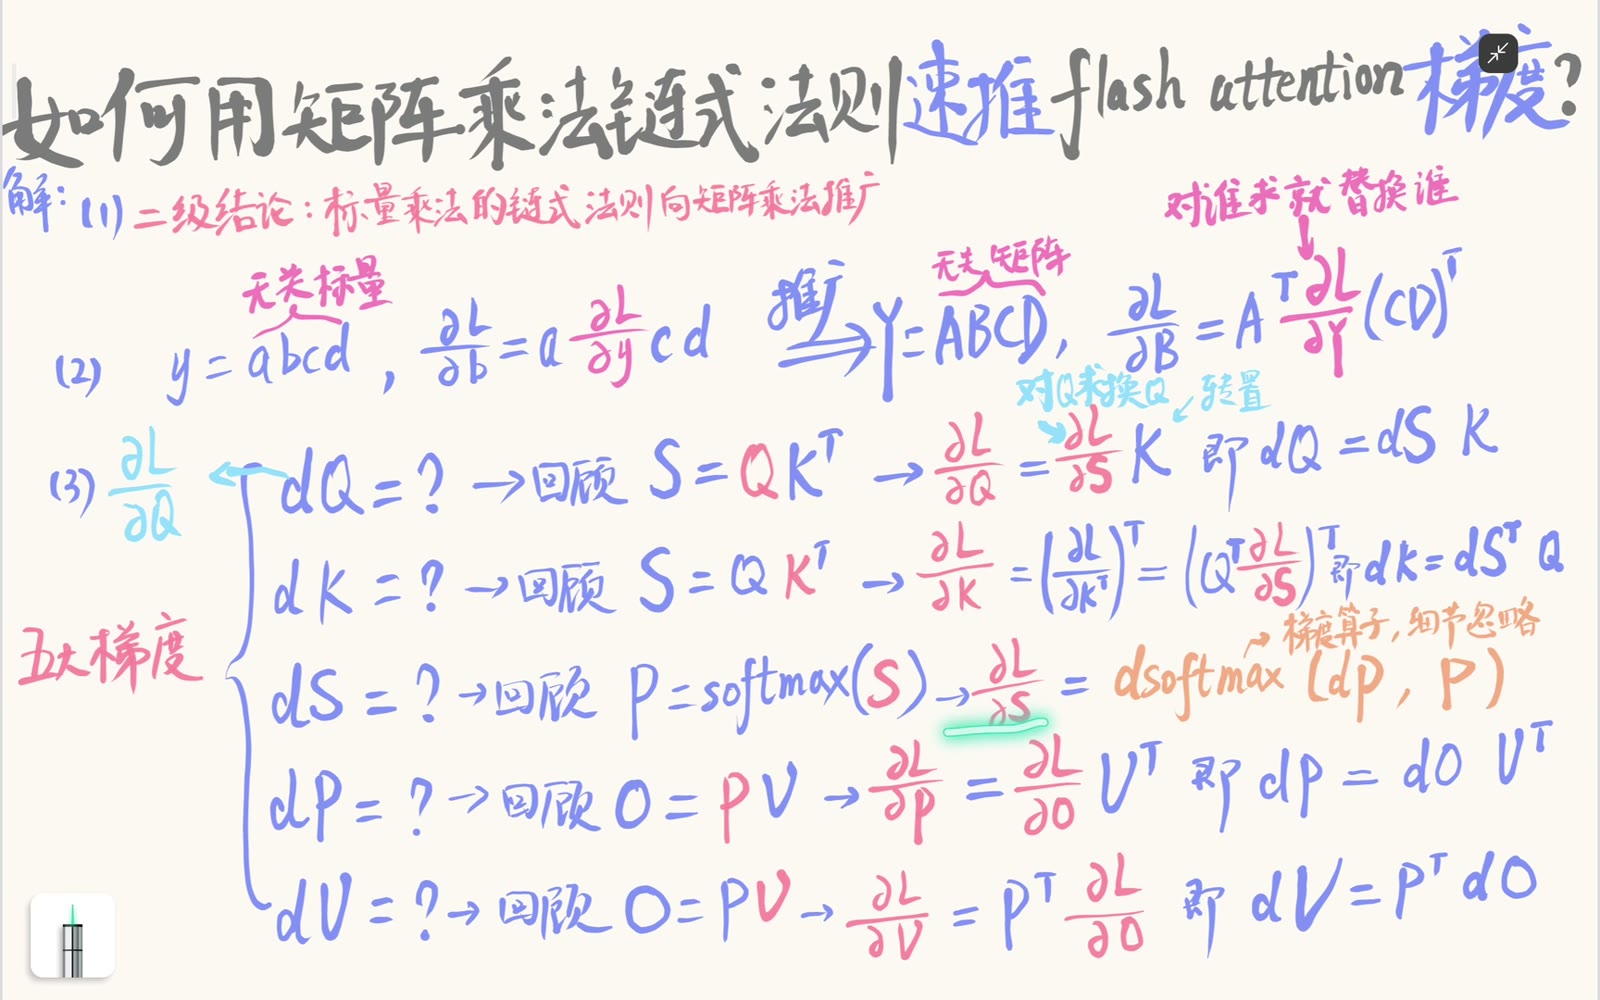 如何用矩阵乘法链式法则速推flash attention梯度?
解: (1) 二级结论: 标量乘法的链式法则向矩阵乘法推广
对谁求就替换谁
无关标量
推广
无关矩阵
(2) y = abcd , ∂L/∂b = a ∂L/∂y cd ⟹ Y = ABCD, ∂L/∂B = A^T ∂L/∂Y (CD)^T
对Q求换Q
转置
(3) ∂L/∂Q ← dQ = ? → 回顾 S = QK^T → ∂L/∂Q = ∂L/∂S K 即 dQ = dS K
dK = ? → 回顾 S = QK^T → ∂L/∂K = (∂L/∂K^T)^T = (Q^T ∂L/∂S)^T 即 dK = dS^T Q
梯度算子, 细节忽略
五大梯度
dS = ? → 回顾 P = softmax(S) → ∂L/∂S = dsoftmax (dP, P)
dP = ? → 回顾 O = PV → ∂L/∂P = ∂L/∂O V^T 即 dP = dO V^T
dV = ? → 回顾 O = PV → ∂L/∂V = P^T ∂L/∂O 即 dV = P^T dO